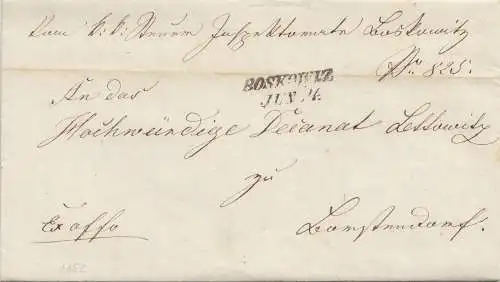 Vom k: k: Steuer Inspektorate Boskowitz
No 825.
BOSKOWITZ
JUN. 24.
An das
Hochwürdige Decanat Lettowitz
zu
Ex offo
Borstendorf.
1852